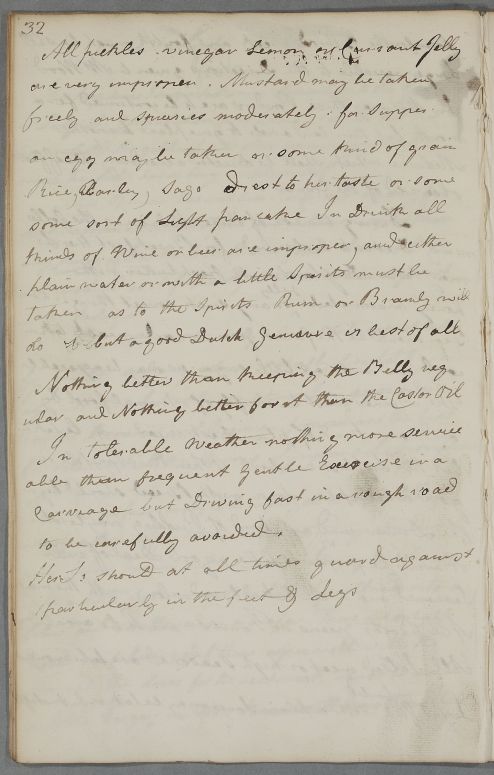 32
All pickles vinegar Lemon or Currant Jelly
are very improper. Mustard may be taken
freely and Spicries moderately. for Supper
an egg may be taken or some kind of grain
Rice, Barley, Sago drest to her taste or some
some sort of Light pancake In Drink all
kinds of Wine or beer are improper, and either
plain water or with a little Spirits must be
taken as to the Spirits Rum or Brandy will
do but a good Dutch Geneve is best of all
Nothing better than keeping the Belly reg
ular and Nothing better for it than the Castor Oil
In Tolerable Weather nothing more service
able than frequent Gentle Exercise in a
Carriage but Driving fast in a rough road
to be carefully avoided.
should at all times guard against
particularly in the feet & Legs